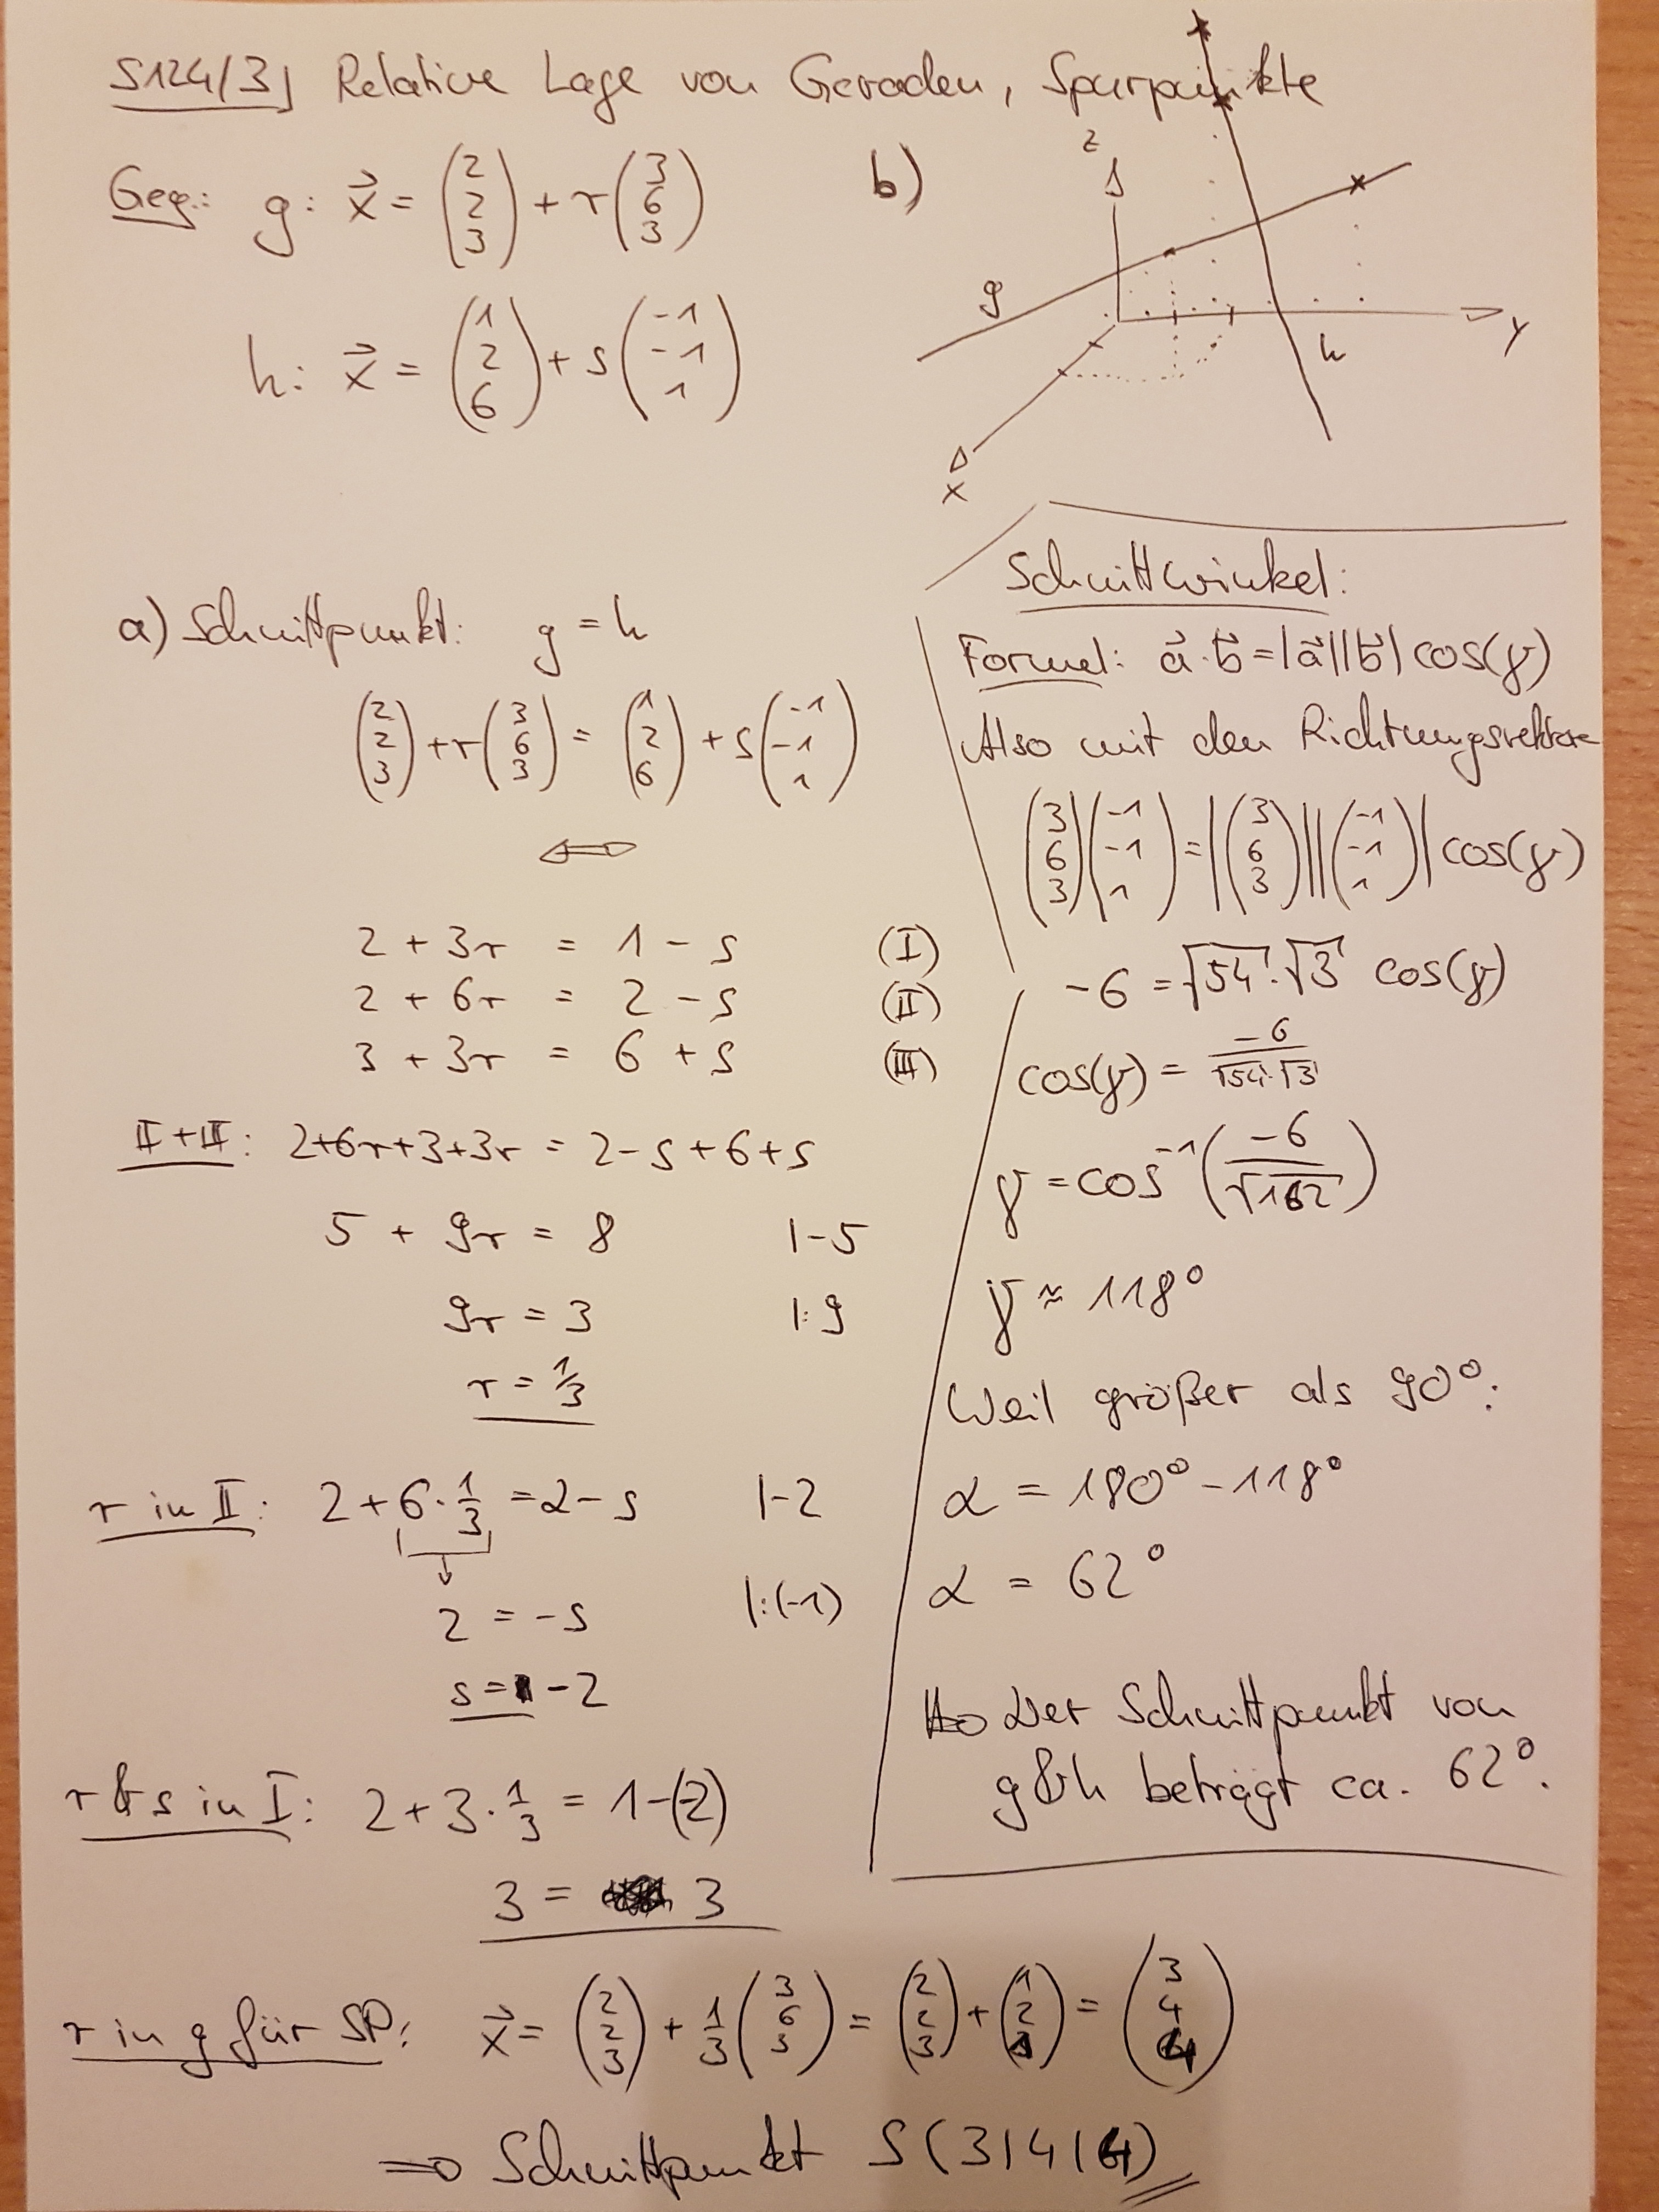 S124/3) Relative Lage von Geraden, Spurpunkte
Geg.: g: x⃗ = (2 2 3) + r (3 6 3)
h: x⃗ = (1 2 6) + s (-1 -1 1)
b)
z
g
h
y
x
a) Schnittpunkt: g = h
(2 2 3) + r (3 6 3) = (1 2 6) + s (-1 -1 1)
⇔
2 + 3r = 1 - s (I)
2 + 6r = 2 - s (II)
3 + 3r = 6 + s (III)
II + III: 2+6r+3+3r = 2-s+6+s
5 + 9r = 8 |-5
9r = 3 |:9
r = 1/3
r in II: 2 + 6 · 1/3 = 2 - s |-2
2 = -s |:(-1)
s = -2
r & s in I: 2 + 3 · 1/3 = 1-(-2)
3 = 3
r in g für SP: x⃗ = (2 2 3) + 1/3 (3 6 3) = (2 2 3) + (1 2 1) = (3 4 4)
⇒ Schnittpunkt S (3|4|4)
Schnittwinkel:
Formel: a⃗ · b⃗ = |a⃗||b⃗| cos(γ)
Also mit den Richtungsvektore
(3 6 3) (-1 -1 1) = |(3 6 3)| |(-1 -1 1)| cos(γ)
-6 = √54 · √3 cos(γ)
cos(γ) = -6/(√54 · √3)
γ = cos⁻¹(-6/√162)
γ ≈ 118°
Weil größer als 90°:
α = 180° - 118°
α = 62°
⇒ Der Schnittpunkt von
g & h beträgt ca. 62°.